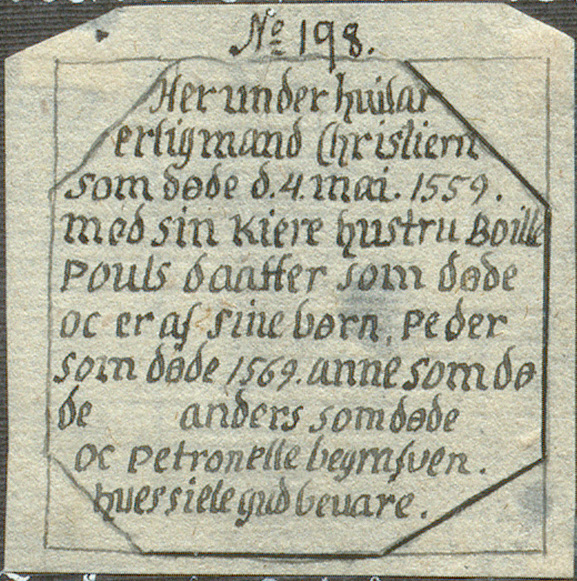 No 198.
Her under huilar
erlig mand Christiern
som døde d. 4. mai. 1559.
med sin kiere hustru Boille
Pouls daatter som døde
oc er af sine børn, Peder
som døde 1569. anne som dø
de anders som døde
oc Petronelle begrafven.
hues siele gud bevare.